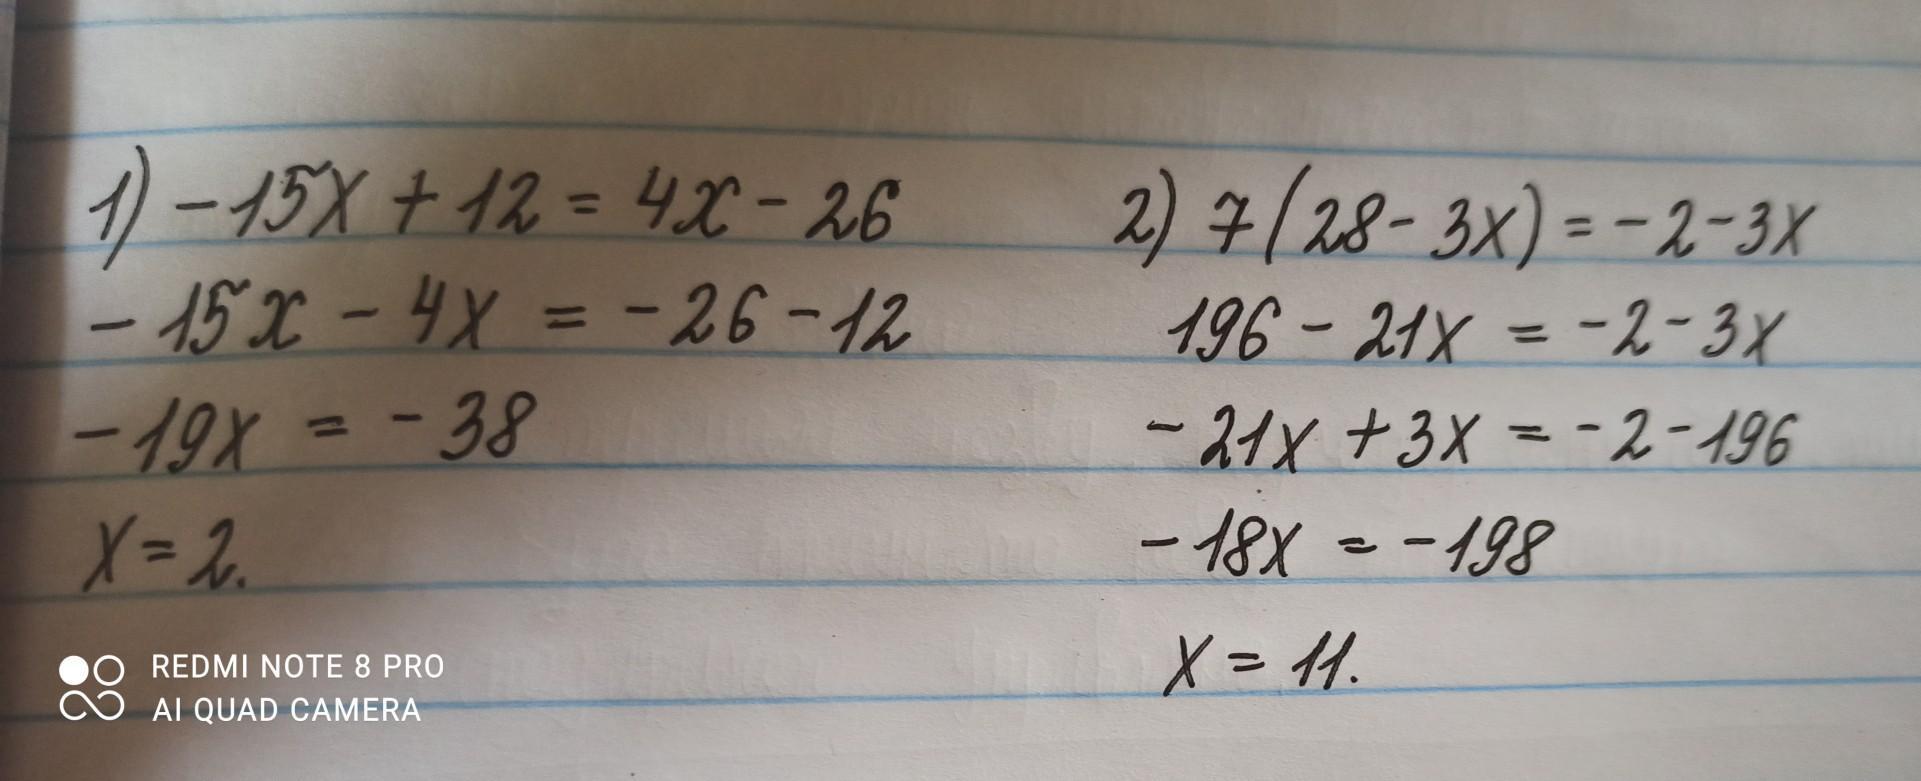 1) -15x + 12 = 4x - 26
- 15x - 4x = -26 - 12
-19x = -38
x = 2.
2) 7(28 - 3x) = -2 - 3x
196 - 21x = -2 - 3x
-21x + 3x = -2 - 196
-18x = -198
x = 11.
REDMI NOTE 8 PRO
AI QUAD CAMERA